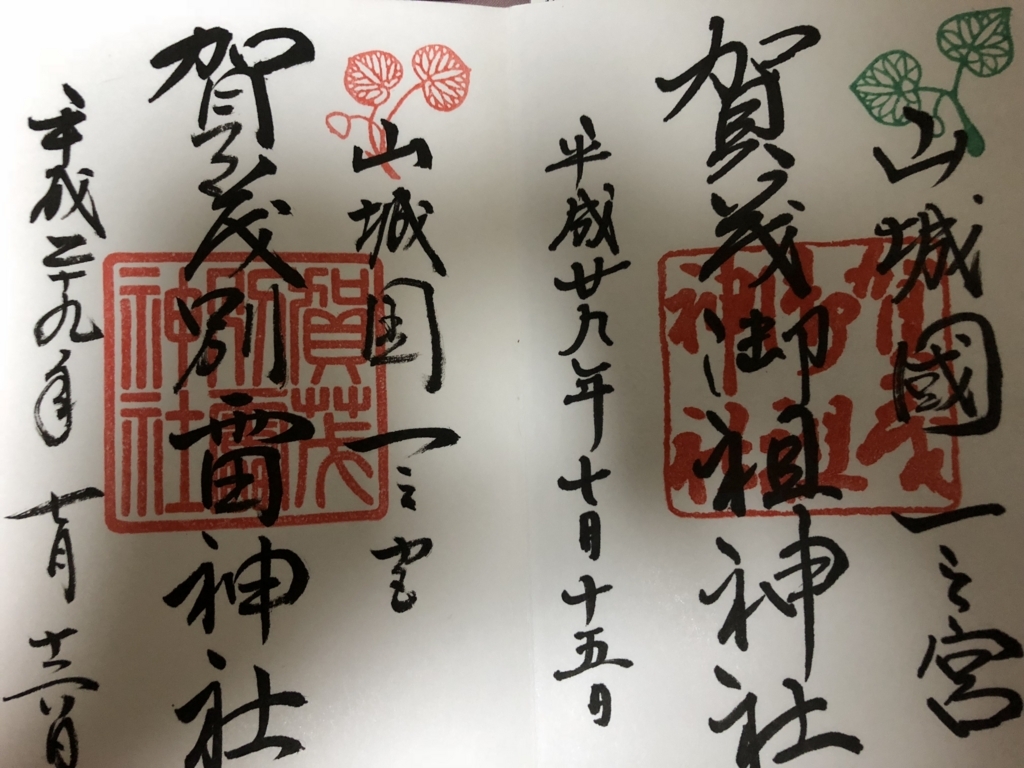 山城國一之宮
賀茂御祖神社
賀茂御祖神社
平成廿九年十月十五日
山城国一之宮
賀茂別雷神社
賀茂別雷神社
平成二十九年十月十六日